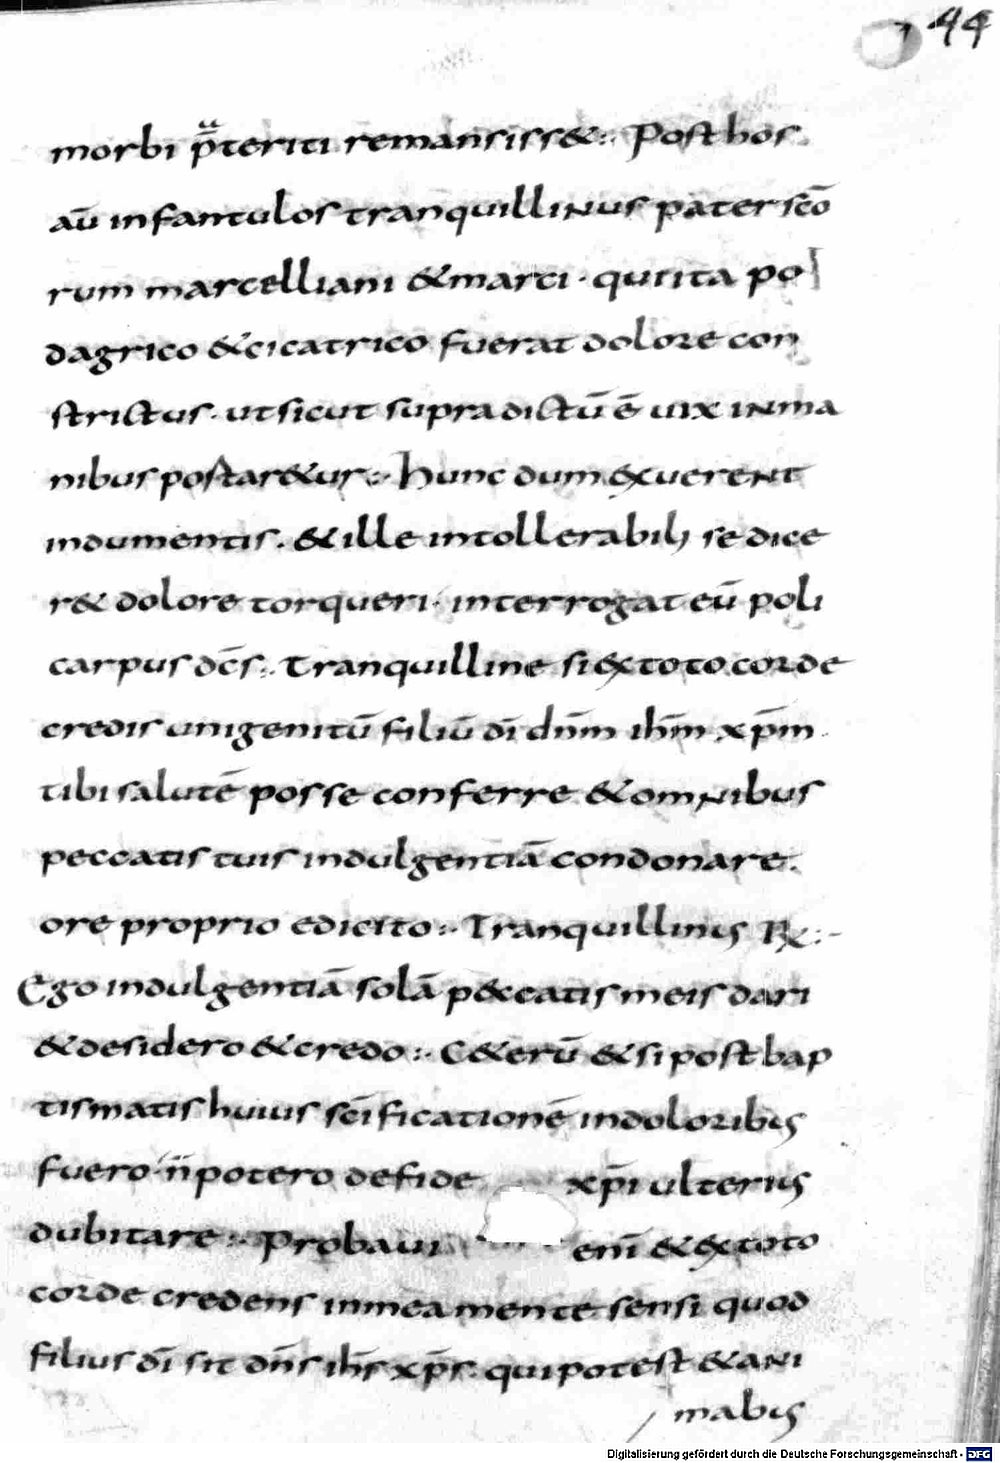 44
morbi p̄teriti remansiss&: Post hos
aū infantulos tranquillinus pater scō
rum marcelliani & marci · qui ita po
dagrico & cicatrico fuerat dolore con
strictus · ut sicut supradictū ē uix in ma
nibus postar&ur: Hunc dum exuerent
indumentis · & ille intollerabili se dice
r& dolore torqueri · interrogat eū poli
carpus dc̄s: Tranquilline si ex toto corde
credis unigenitū filiū dī dn̄m ihm̄ xp̄m ·
tibi salutē posse conferre & omnibus
peccatis tuis indulgentiā condonare ·
ore proprio edicito: Tranquillinus R̄x:
Ego indulgentiā solā peccatis meis dari
& desidero & credo: C&erū & si post bap
tismatis huius scīficationē in doloribus
fuero · n̄ potero de fide xp̄i ulterius
dubitare: Probaui enī & ex toto
corde credens in mea mente sensi quod
filius dī sit dn̄s ihs̄ xp̄s · qui potest & ani
mabus
Digitalisierung gefördert durch die Deutsche Forschungsgemeinschaft - DFG